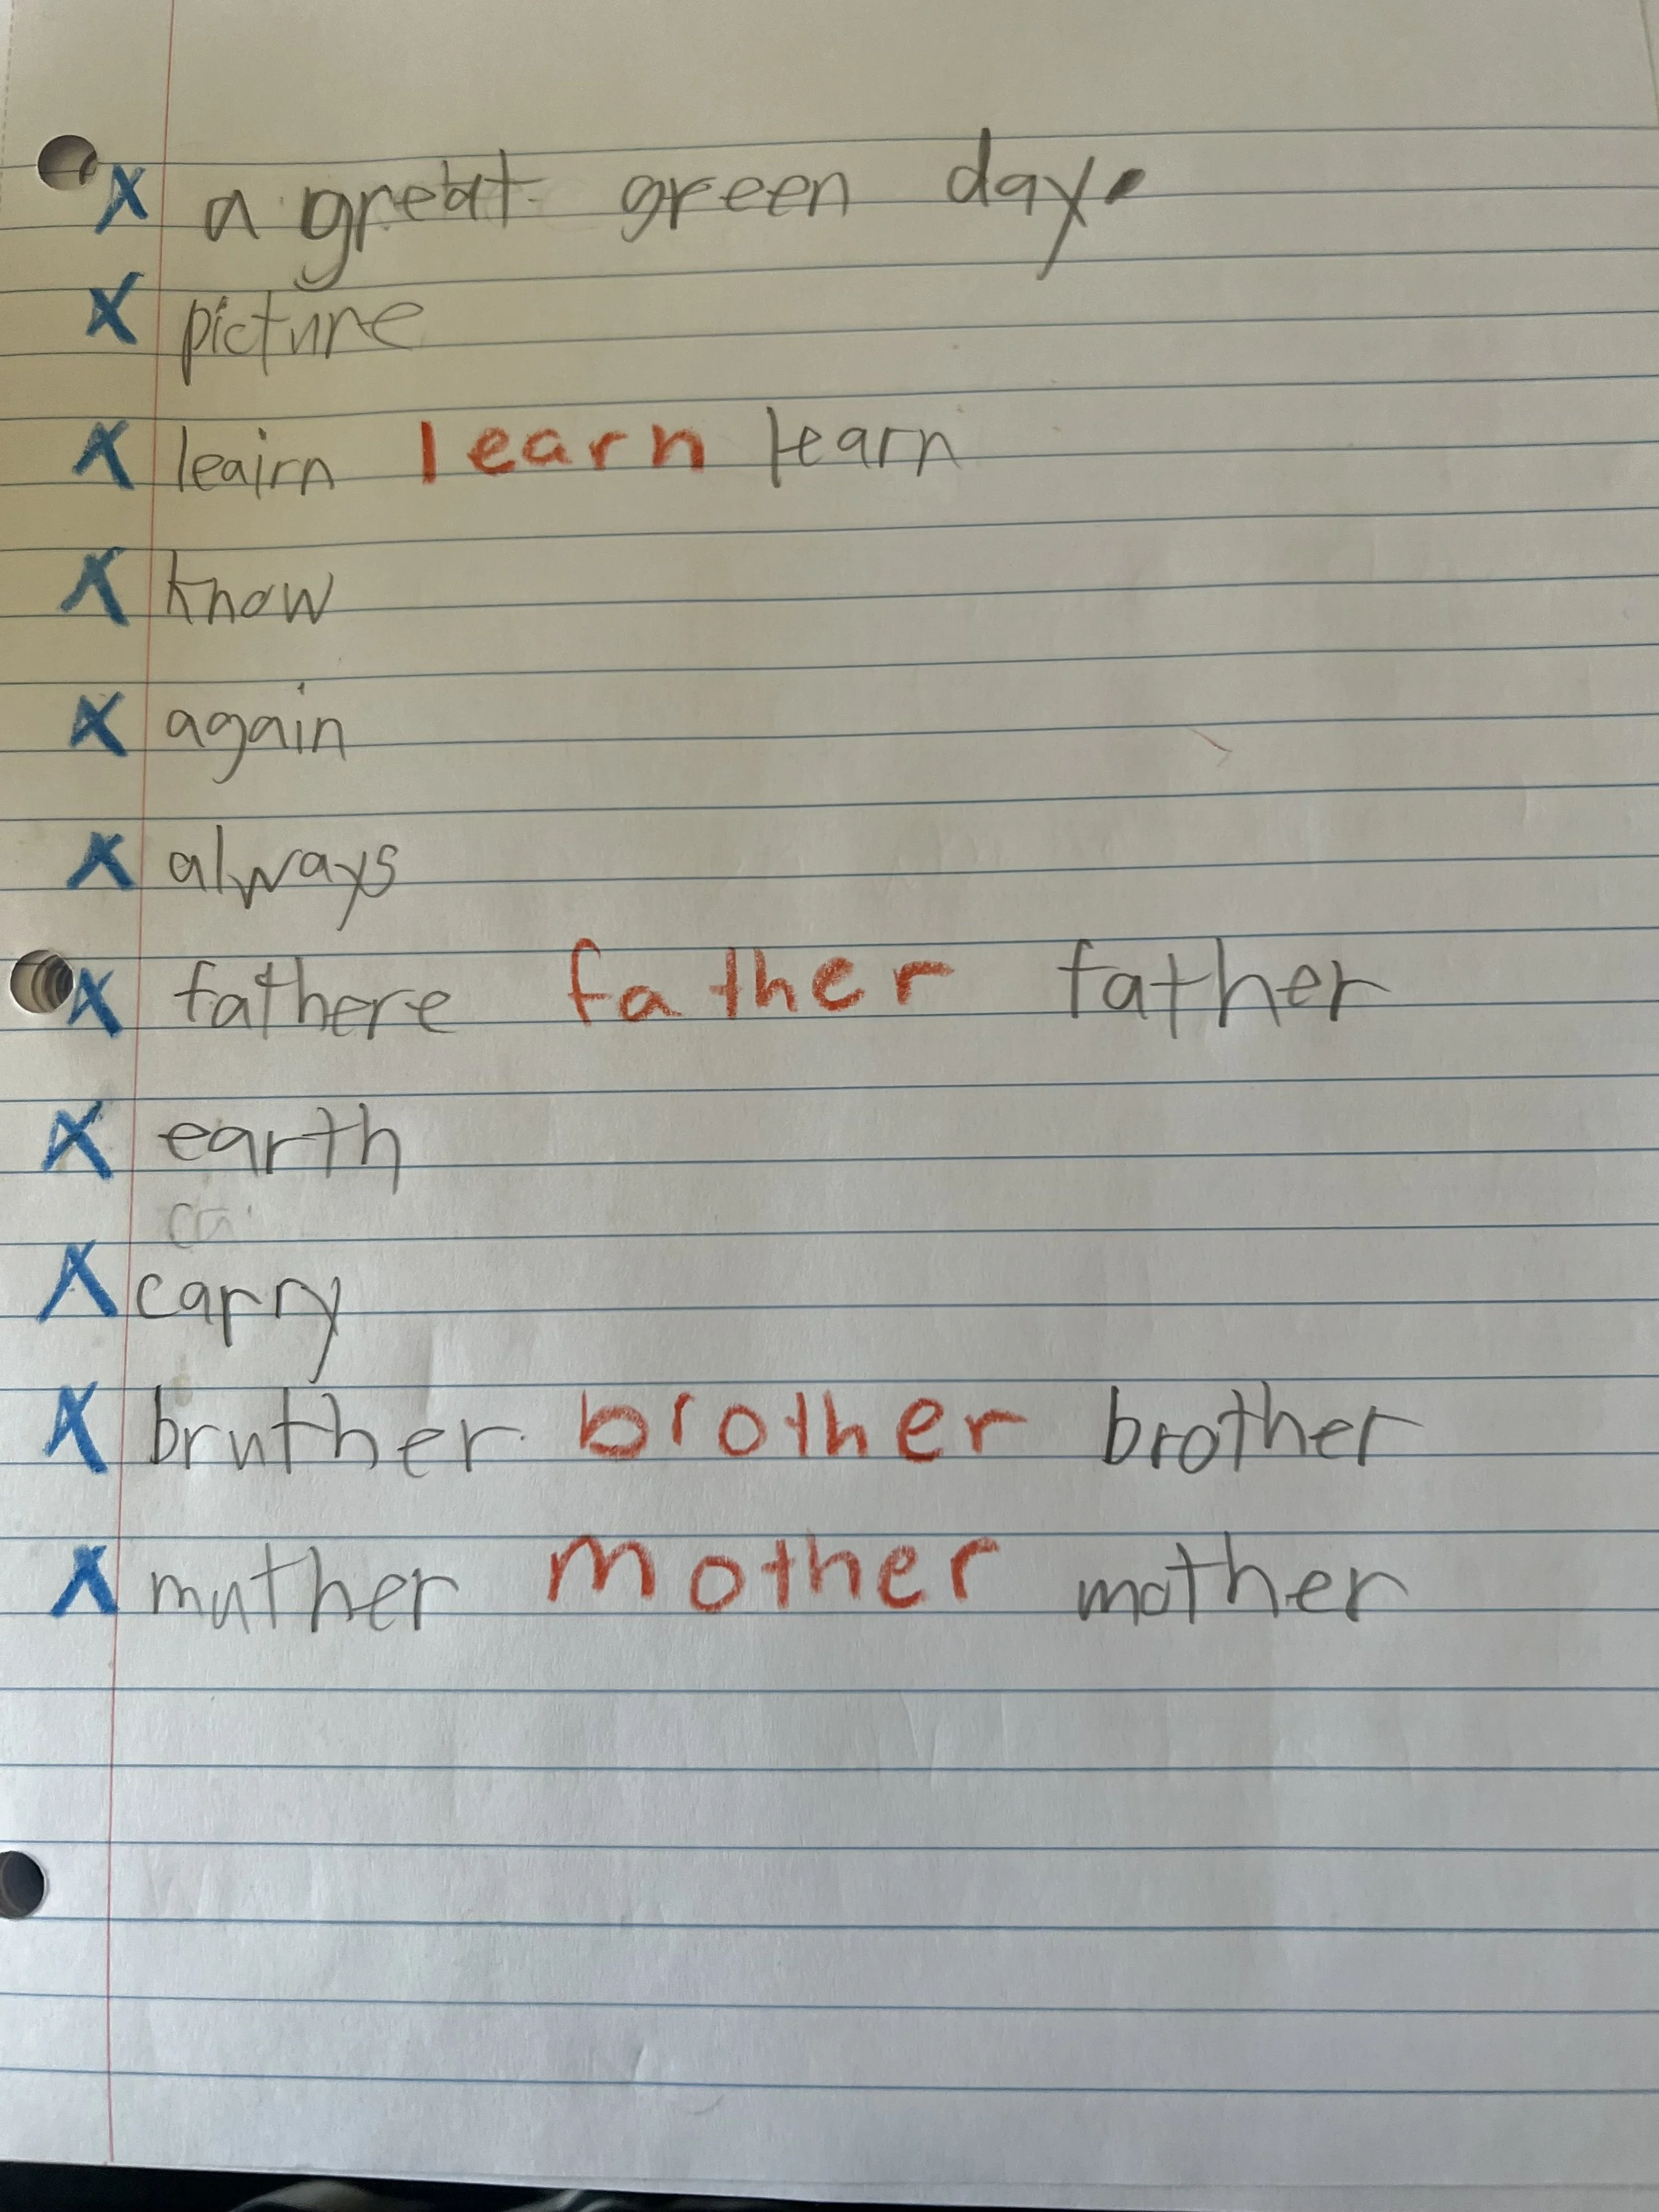 X a great green day.
X picture
X leairn learn learn
X know
X again
X always
X fathere father father
X earth
X carry
X bruther brother brother
X muther mother mother